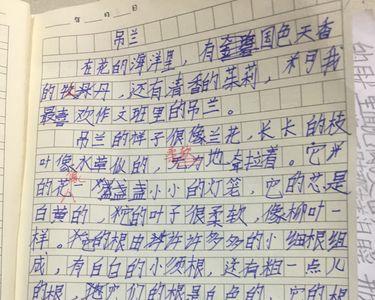 年 月 日
吊兰
在花的海洋里，有国色天香
的牡丹，还有清香的茉莉，我
最喜欢作文班里的吊兰。
吊兰的样子很像兰花，长长的枝
叶像水草似的，无力地牵拉着。它
的花一盏盏小小的灯笼，它的芯是
白黄的，它的叶子很柔软，像柳叶一
样。它的根由许许多多的小细根组
成，有白白的小须根，还有粗一点儿
的根，它们的根是白色的，它的根